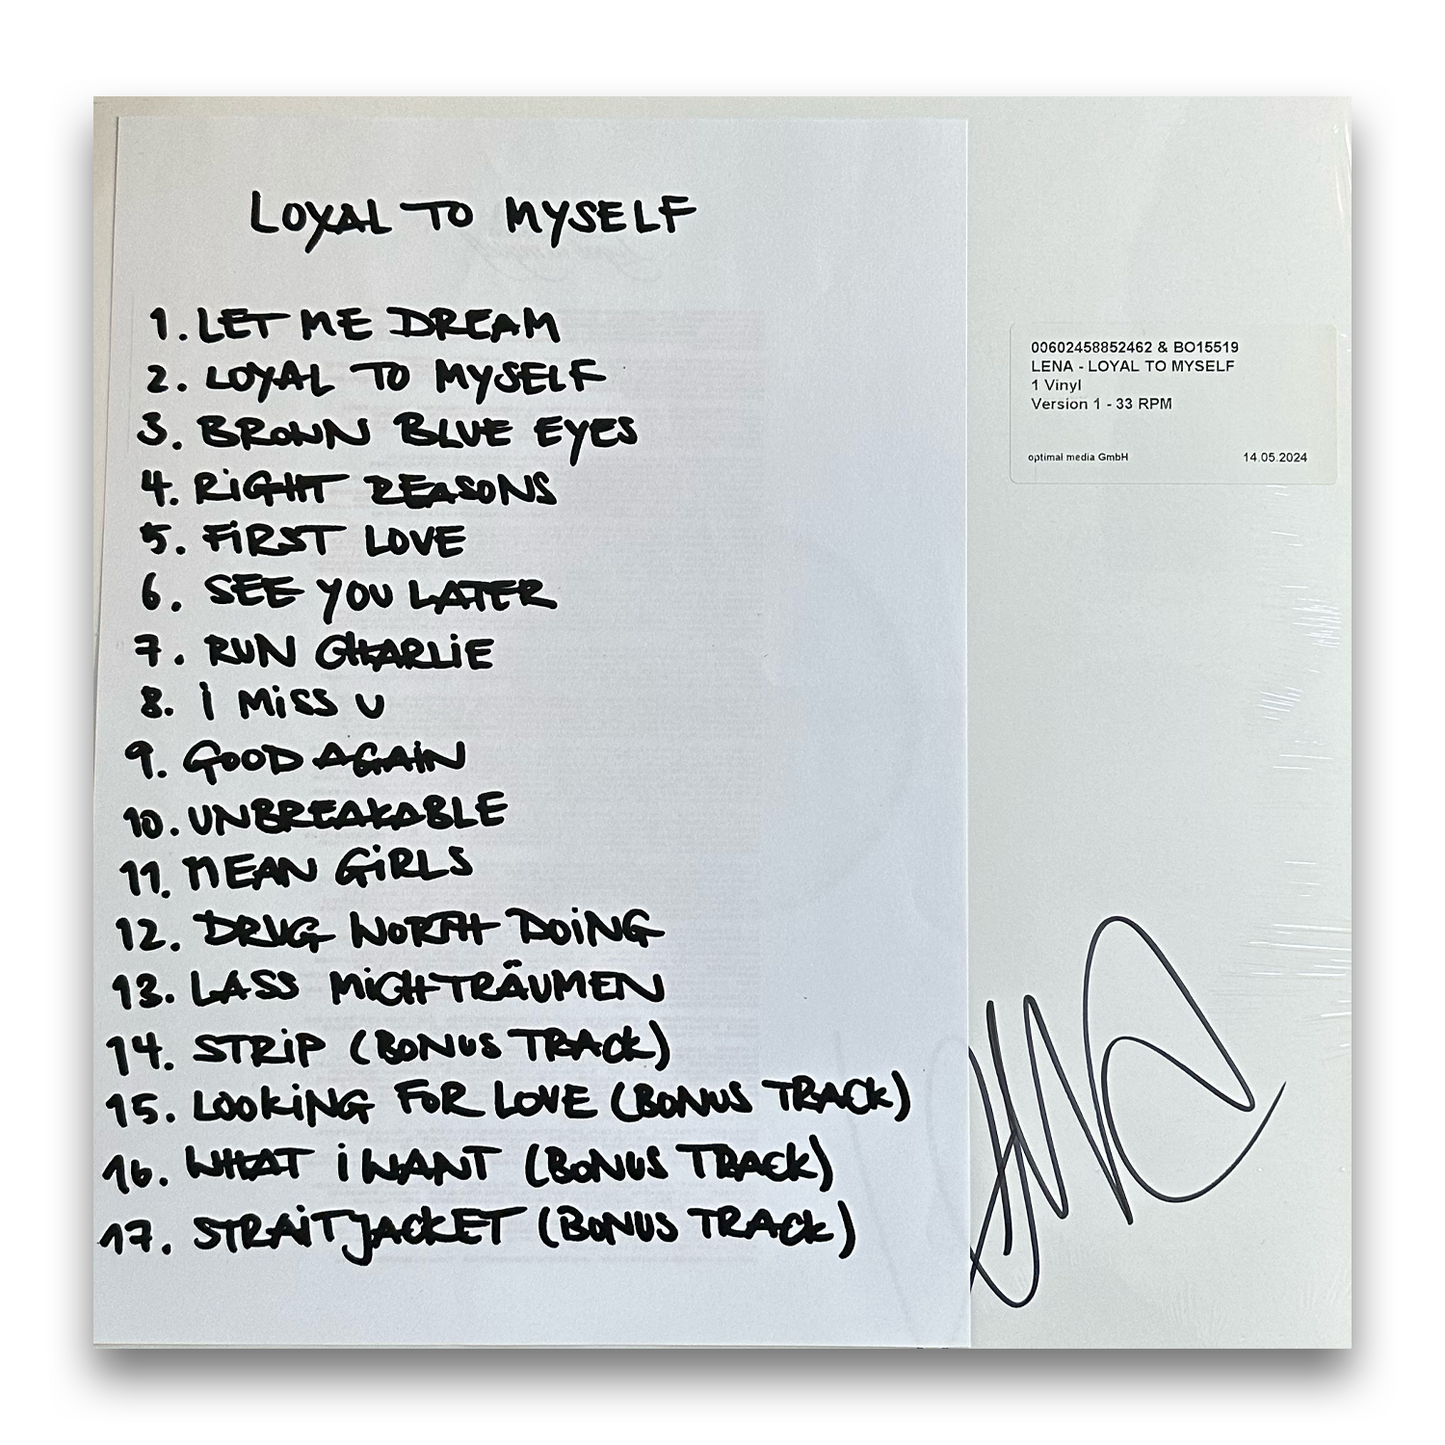 LOYAL TO MYSELF
1. LET ME DREAM
2. LOYAL TO MYSELF
3. BROWN BLUE EYES
4. RiGHT REASONS
5. FiRST LOVE
6. SEE YOU LATER
7. RUN CHARLiE
8. i MiSS U
9. GOOD AGAiN
10. UNBREAKABLE
11. MEAN GiRLS
12. DRUG WORTH DOiNG
13. LASS MiCH TRÄUMEN
14. STRiP (BONUS TRACK)
15. LOOKiNG FOR LOVE (BONUS TRACK)
16. WHAT i WANT (BONUS TRACK)
17. STRAiTJACKET (BONUS TRACK)
00602458852462 & BO15519
LENA - LOYAL TO MYSELF
1 Vinyl
Version 1 - 33 RPM
optimal media GmbH 14.05.2024